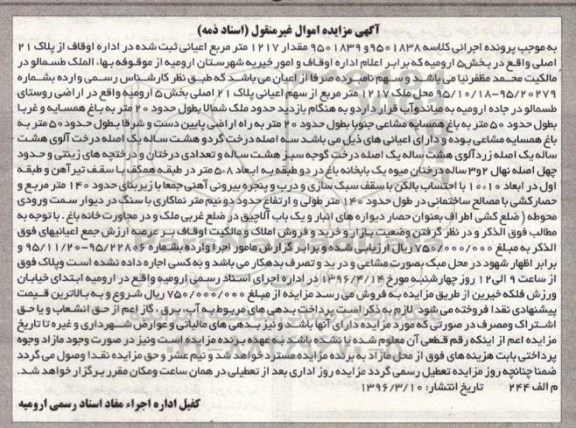 آگهی مزایده اموال غیرمنقول (اسناد ذمه)
به موجب پرونده اجرائی کلاسه ۹۵۰۱۸۳۸ و ۹۵۰۱۸۳۹ مقدار ۱۲۱۷ متر مربع اعیانی ثبت شده در اداره اوقاف از پلاک ۲۱
اصلی واقع در بخش۵ ارومیه که برابر اعلام اداره اوقاف و امور خیریه شهرستان ارومیه از موقوفه بها، الملک طسمالو در
مالکیت محمد مظفرنیا می باشد و سهم نامبرده صرفا از اعیان می باشد که طبق نظر کارشناس رسمی وارده بشماره
۹۵/۱۰/۱۸-۹۵/۲۰۲۷۹ محل ملک ۱۲۱۷ متر مربع از سهم اعیانی پلاک ۲۱ اصلی بخش ۵ ارومیه واقع در اراضی روستای
طسمالو در جاده ارومیه به میاندوآب قرار دارد و به هنگام بازدید حدود ملک شمالا بطول حدود ۲۰ متر به باغ همسایه و غربا
بطول حدود ۵۰ متر به باغ همسایه مشاعی جنوبا بطول حدود ۲۰ متر به راه اراضی پایین دست و شرقا بطول حدود ۵۰ متر به
باغ همسایه مشاعی بوده و دارای اعیانی های ذیل می باشد سه اصله درخت گردو هشت ساله یک اصله درخت آلوی هشت
ساله یک اصله زردآلوی هشت ساله یک اصله درخت گوجه سبز هشت ساله و تعدادی درختان و درختچه های زینتی و حدود
چهل اصله نهال ۲و۳ ساله درختان میوه یک بابخانه باغ در دو طبقه به ابعاد ۵.۰۸ متر در طبقه همکف با سقف تیرآهن و طبقه
اول در ابعاد ۱۰.۱۰ با احتساب بالکن با سقف سبک سازی و درب و پنجره بیرونی آهنی جمعا با زیربنای حدود ۱۴۰ متر مربع و
حصارکشی با مصالح ساختمانی در طول حدود ۱۴۰ متر طولی و ارتفاع حدود دو نیم متر نماکاری با سنگ در دیوار سمت ورودی
محوطه (ضلع کشی اطراف بعنوان حصار دیواره های انبار و یک باب آلاچیق در ضلع غربی ملک و در مجاورت خانه باغ. با توجه به
مطالب فوق الذکر و در نظر گرفتن وضعیت بازار و خرید و فروش املاک و مالکیت اوقاف بر عرصه ارزش جمع اعیانیهای فوق
الذکر به مبلغ ۷۵۰/۰۰۰/۰۰۰ ریال ارزیابی شده و برابر گزارش مامور اجرا وارده بشماره ۹۵/۲۲۸۰۶-۹۵/۱۱/۲۰ و
برابر اظهار شهود در محل مبک بصورت مشاعی و در ید و تصرف بدهکار می باشد و به کسی اجاره داده نشده است وپلاک فوق
از ساعت ۹ الی ۱۲ روز چهارشنبه مورخ ۱۳۹۶/۴/۱۴ در اداره اجرای اسناد رسمی ارومیه واقع در ارومیه ابتدای خیابان
ورزش فلکه خیرین از طریق مزایده به فروش می رسد مزایده از مبلغ ۷۵۰/۰۰۰/۰۰۰ ریال شروع و به بالاترین قیمت
پیشنهادی نقدا فروخته می شود لازم به ذکر است پرداخت بدهی های مربوط به آب، برق، گاز اعم از حق انشعاب و یا حق
اشتراک ومصرف در صورتی که مورد مزایده دارای آنها باشد و نیز بدهی های مالیاتی و عوارض شهرداری و غیره تا تاریخ
مزایده اعم از اینکه رقم قطعی آن معلوم شده یا نشده باشد به عهده برنده مزایده است ونیز در صورت وجود مازاد وجوه
پرداختی بابت هزینه های فوق از محل مازاد به برنده مزایده مسترد خواهد شد و نیم عشر و حق مزایده نقدا وصول می گردد
ضمنا چنانچه روز مزایده تعطیل رسمی گردد مزایده روز اداری بعد از تعطیلی در همان ساعت ومکان مقرر برگزار خواهد شد.
م الف ۲۴۴ تاریخ انتشار: ۱۳۹۶/۳/۱۰
کفیل اداره اجراء مفاد اسناد رسمی ارومیه